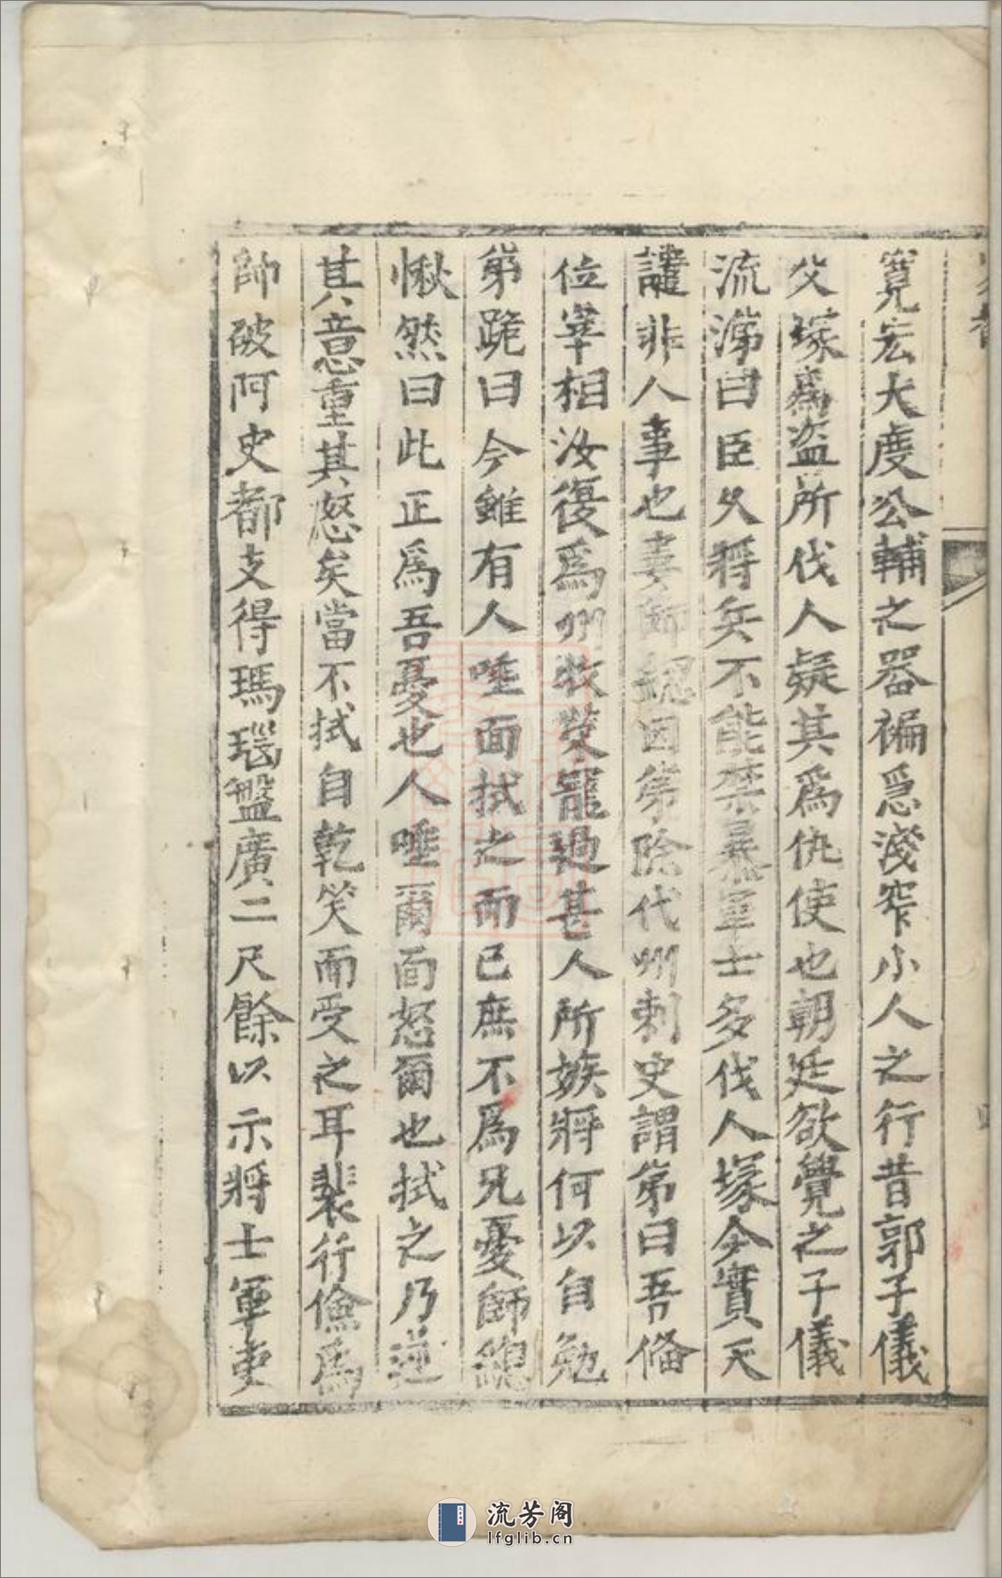 寬宏大度公輔之器褊急淺窄小人之行昔郭子儀
父塚爲盜所伐人疑其爲仇使也朝廷欲覺之子儀
流涕曰臣久將兵不能禁暴軍士多伐人塚今實天
譴非人事也婁師緦因弟除代州刺史謂弟曰吾俻
位宰相汝復爲州牧榮寵過甚人所嫉將何以自勉
弟跪曰今雖有人唾面拭之而已庶不爲兄憂師緦
愀然曰此正爲吾憂也人唾爾面怒爾也拭之乃逆
其意重其怒矣當不拭自乾笑而受之耳裴行儉爲
帥破阿史都支得瑪瑙盤廣二尺餘以示將士軍吏
流芳阁
lfglib.cn